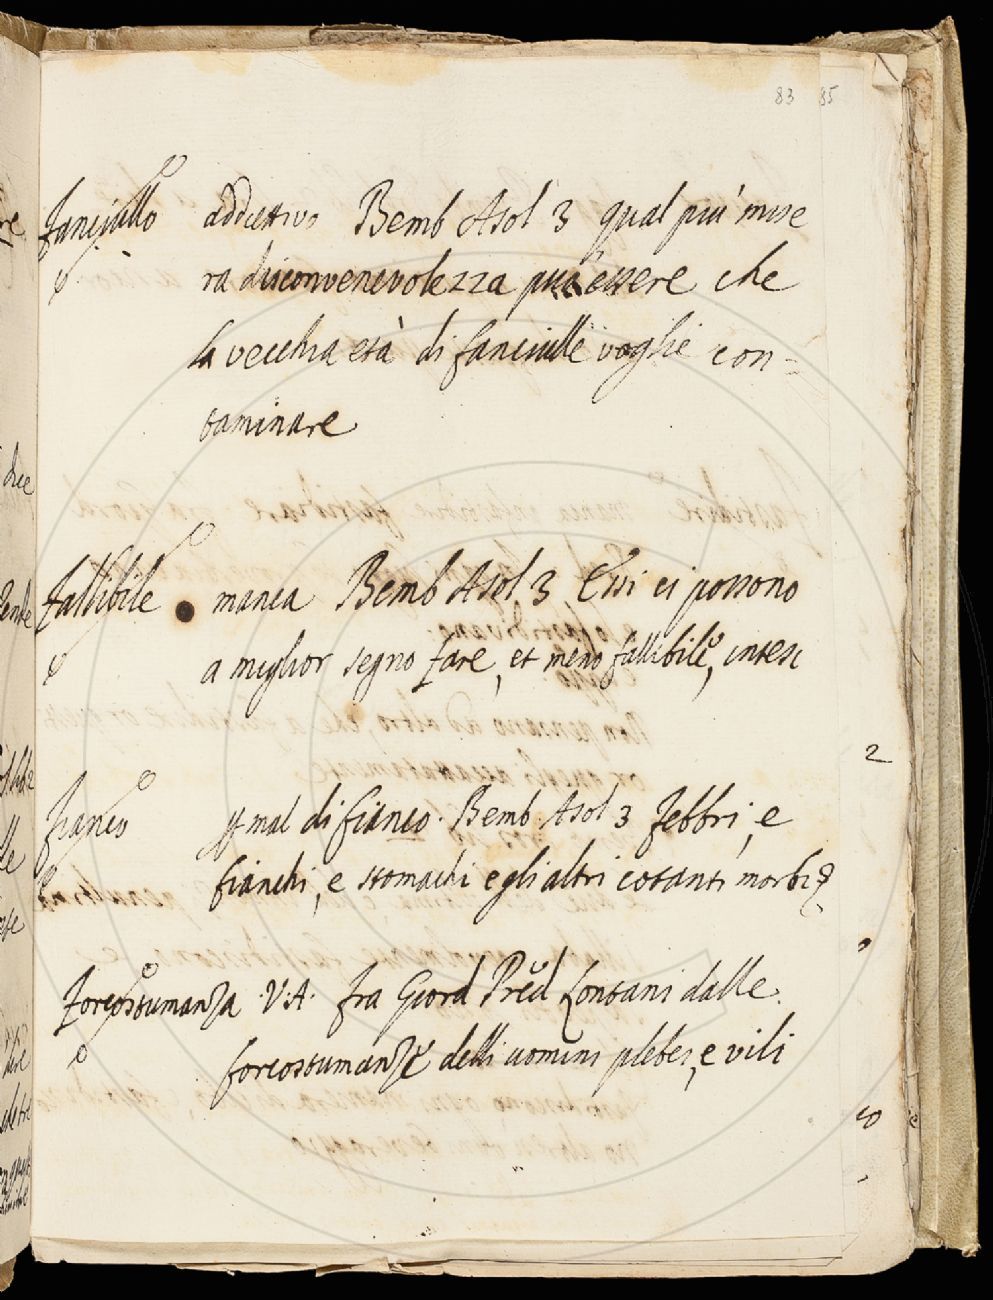 83 85
fanciullo addiettivo Bemb Asol 3 qual piu' mise
ra disconvenevolezza puo essere che
la vecchia età di fanciulle voglie con=
taminare
fallibile manca Bemb Asol 3 Essi ci possono
a miglior segno fare, et meno fallibile, intesi
fianco mal di fianco. Bemb Asol 3 febbri, e
fianchi, e stomachi e gli altri cotanti morbi
forcostumanza .V.A. fra Giord Pred Lontani dalle
forcostumanze delli uomini plebei, e vili